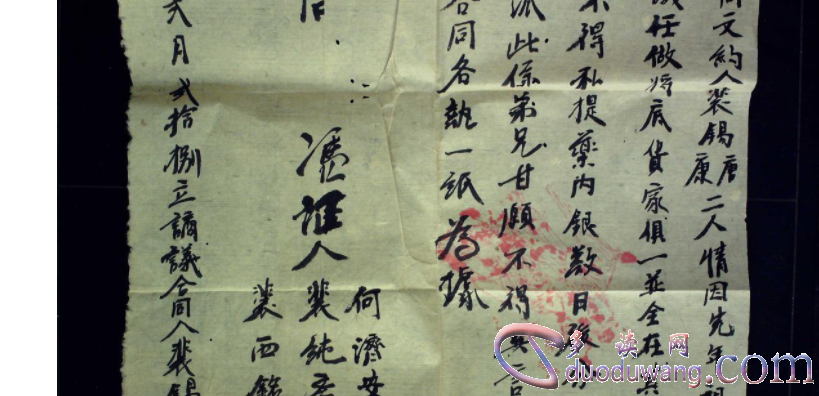 文約人裴錫唐康二人情因先年
任做將底貨家俱一並全在
不得私提藥內銀数日後
派此係弟兄甘願不得異言
合同各執一紙為據
何濟
憑證人裴純
裴西銘
弍月弍拾捌立議合同人裴錫
多读网
duoduwang.com